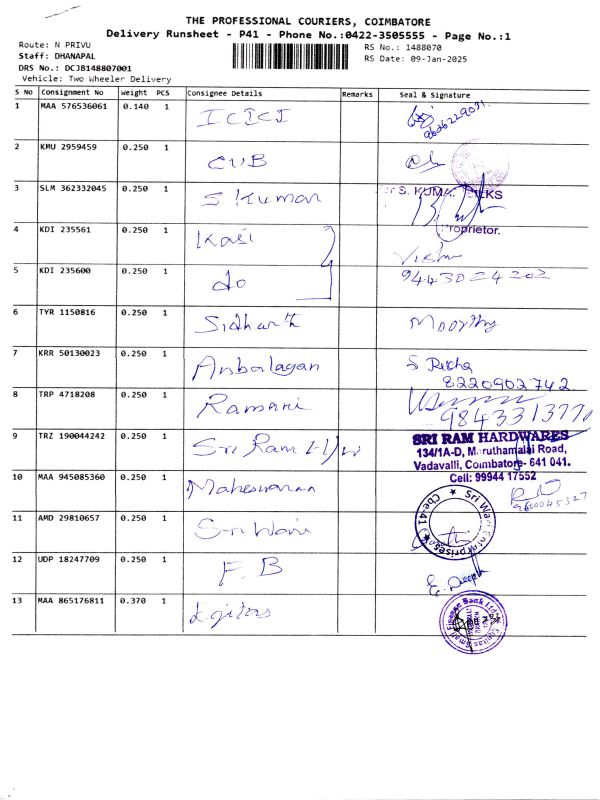 THE PROFESSIONAL COURIERS, COIMBATORE
Delivery Runsheet - P41 - Phone No.:0422-3505555 - Page No.:1
Route: N PRIVU
RS No.: 1488070
Staff: DHANAPAL
RS Date: 09-Jan-2025
DRS No.: DCJB148807001
Vehicle: Two Wheeler Delivery
S No Consignment No Weight PCS Consignee Details Remarks Seal & Signature
1 MAA 576536061 0.140 1 ICICI
2 KMU 2959459 0.250 1 CUB
3 SLM 362332045 0.250 1 S Kumar
S. KUMA
LKS
roprietor.
4 KDI 235561 0.250 1 Kasi
5 KDI 235600 0.250 1 do 9443024202
6 TYR 1150816 0.250 1 Sidharth Moorthy
7 KRR 50130023 0.250 1 Anbalagan S Rekha
8220902742
8 TRP 4718208 0.250 1 Ramani
9843313770
9 TRZ 190044242 0.250 1 Sri Ram H/W
SRI RAM HARDWARES
134/1A-D, Maruthamalai Road,
Vadavalli, Coimbatore- 641 041.
Cell: 99944 17552
10 MAA 945085360 0.250 1 Maheswaran
9600045327
11 AMD 29810657 0.250 1 Sri Wari
Sri Wari Enterprises Cbe-41
12 UDP 18247709 0.250 1 F.B E. Deepa
13 MAA 865176811 0.370 1
Small Finance Bank Ltd